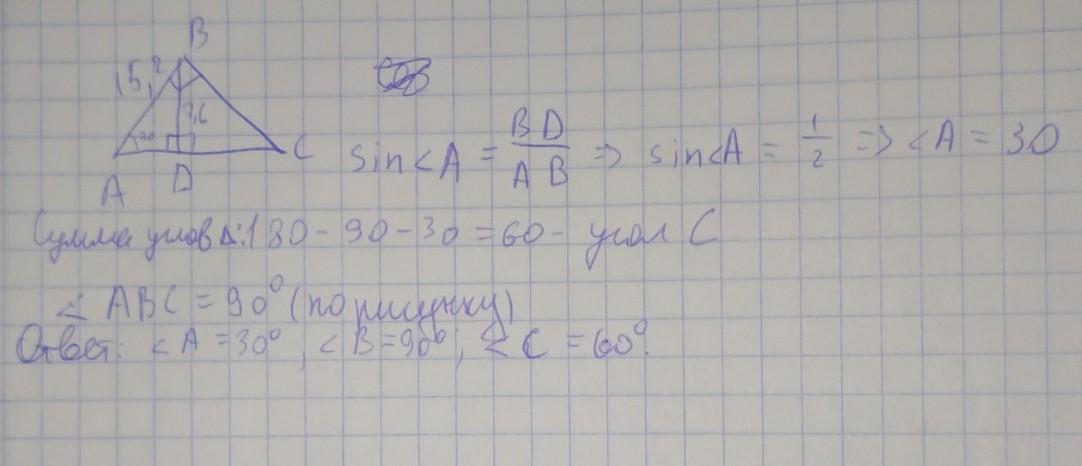 B
15,2
30
7,6
A
D
C
sin<A = BD/AB => sin<A = 1/2 => <A = 30
Сумма углов Δ: 180 - 90 - 30 = 60 - угол C
< ABC = 90° (по рисунку)
Ответ: <A = 30°, <B = 90°, < C = 60°.